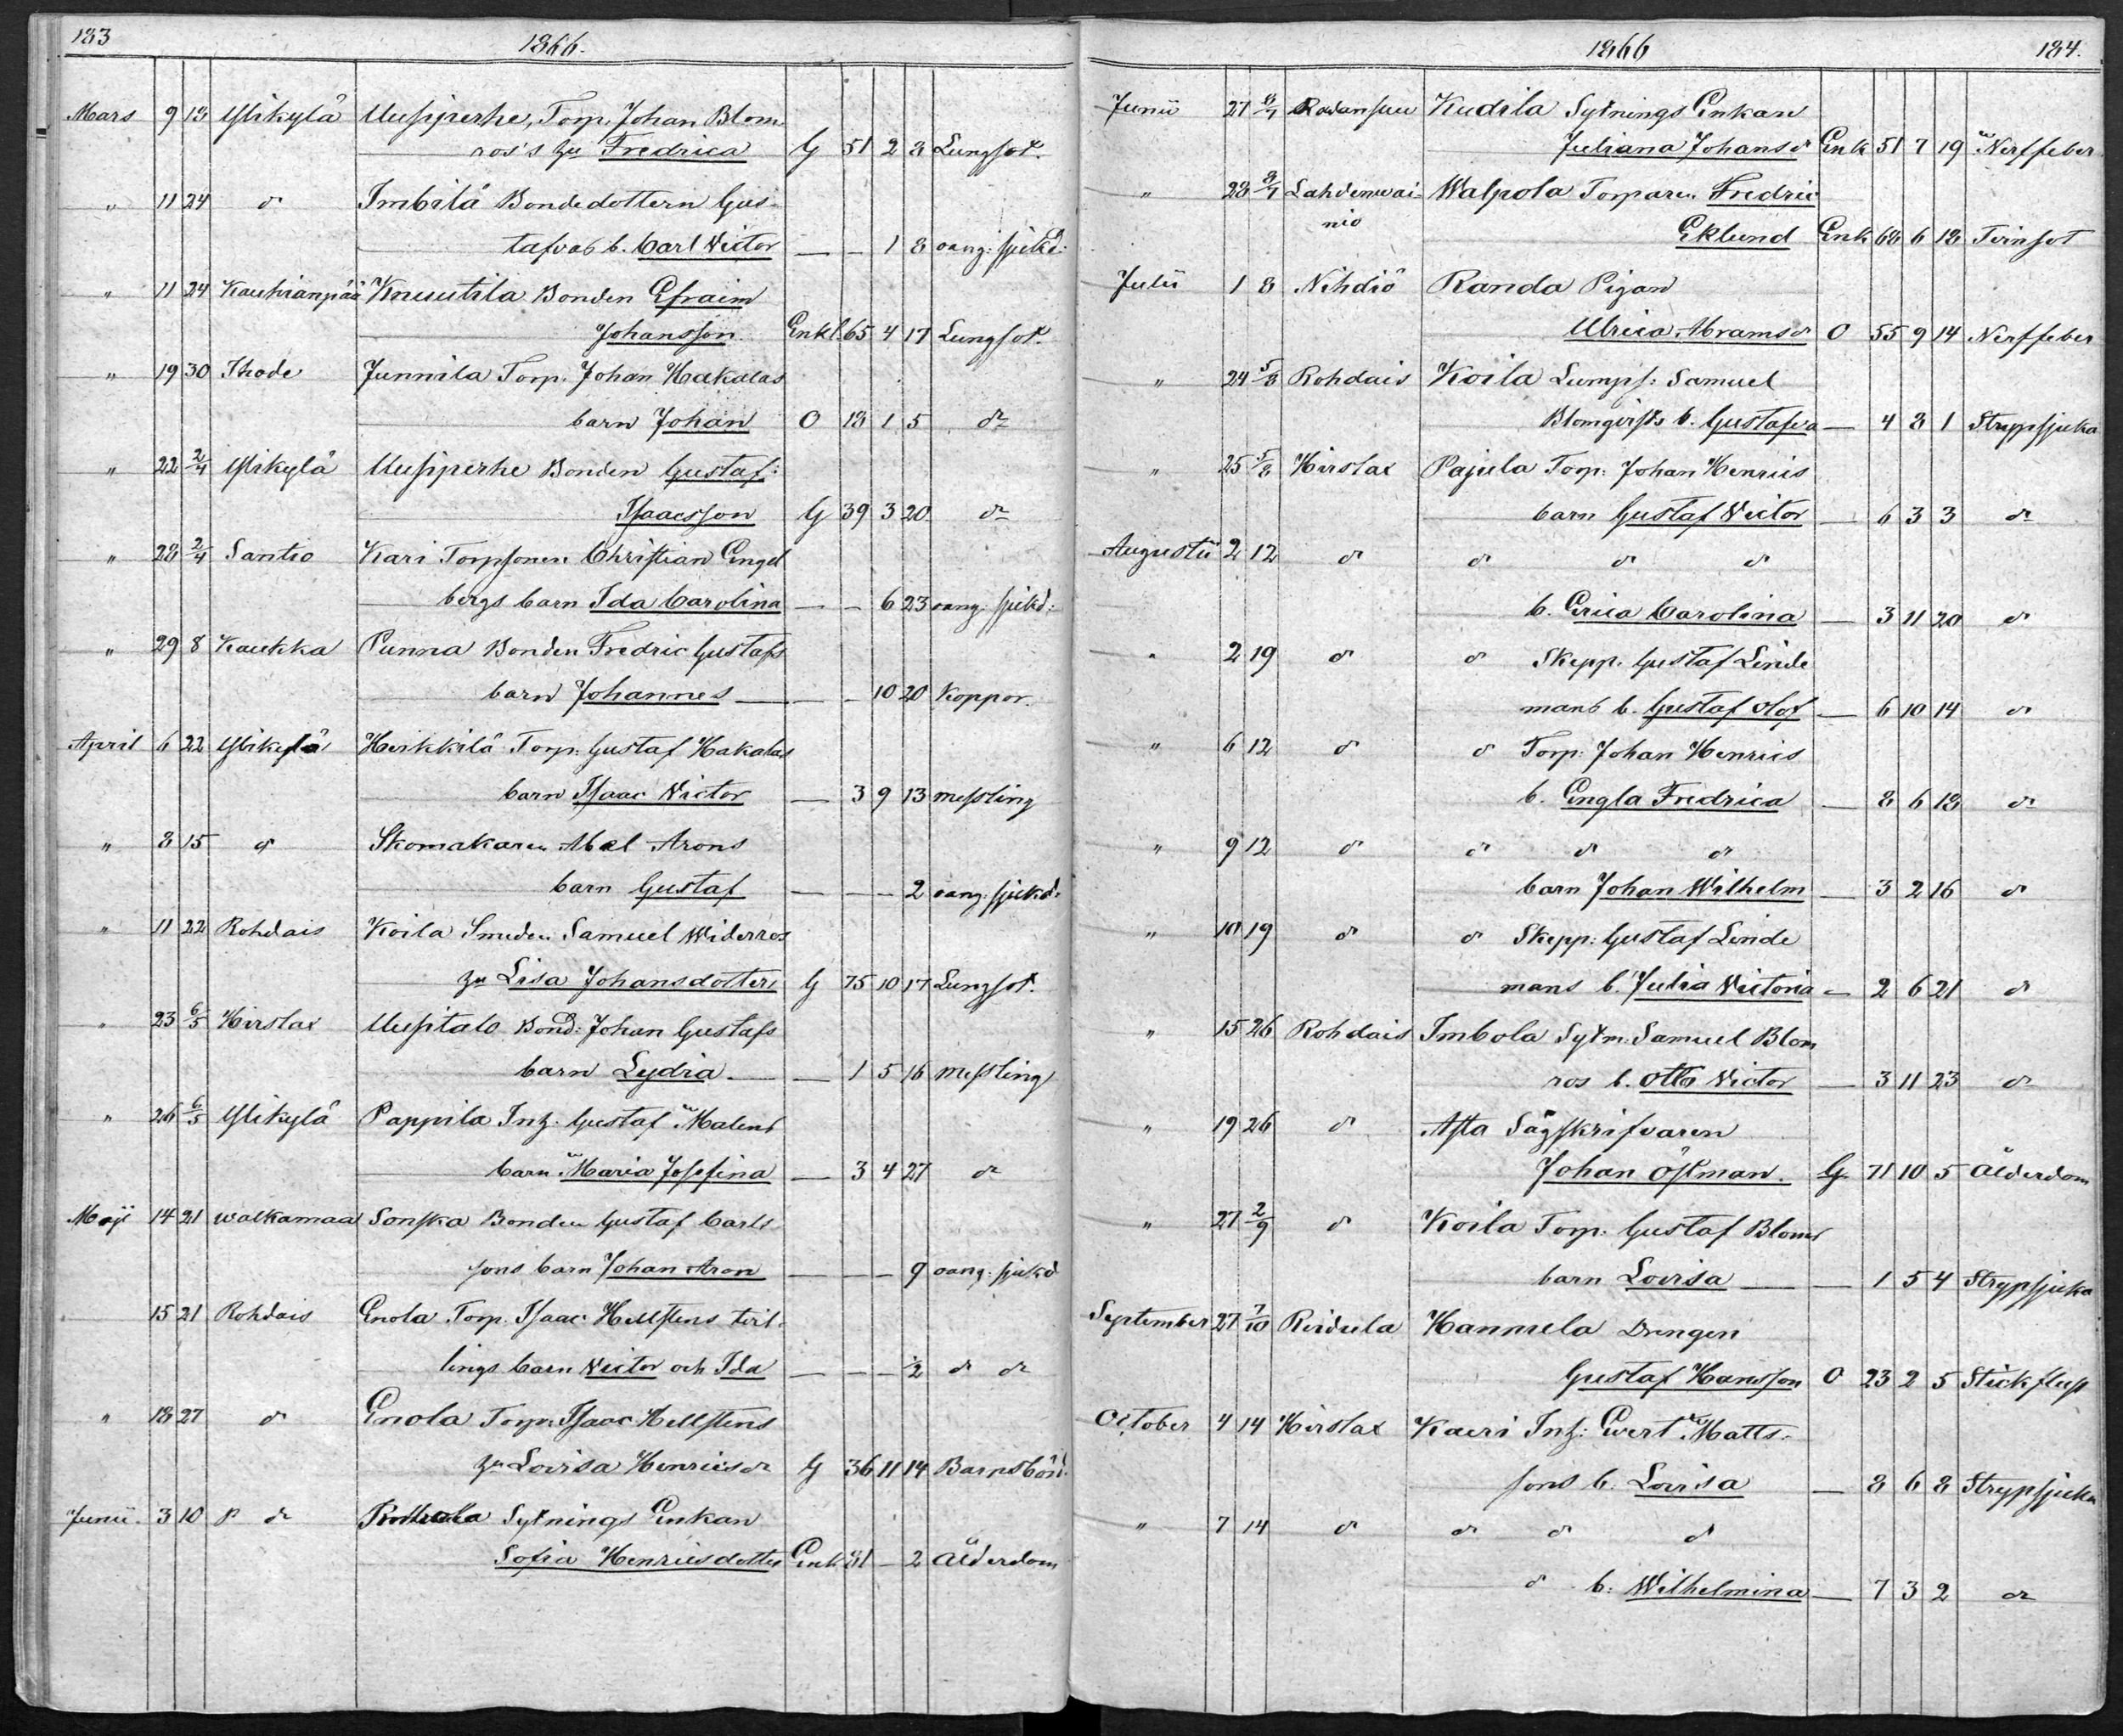 183
1866.
Mars 9 13 Ylikylä Uusiperhe, Torp. Johan Blom
ros's hu Fredrica G 51 2 8 Lungsot.
" 11 24 d:o Imbilä Bondedottern Gus-
tafvas b. Carl Victor — — 1 8 oang: sjukd:
" 11 24 Kauhianpää Knuutila Bonden Efraim
Johansson. Enkl. 65 4 17 Lungsot.
" 19 30 Ihode Junnila Torp. Johan Hakalas
barn Johan O 18 1 5 d:o
" 22 2/4 Ylikylä Uusiperhe Bonden Gustaf
Isaacsson G 39 3 20 d:o
" 28 2/4 Santio Kari Torpsonen Christian Engel
bergs barn Ida Carolina — — 6 23 oang: sjukd:
" 29 8 Kaukka Punna Bonden Fredric Gustafs
barn Johannes — — 10 20 Koppor.
April 6 22 Ylikylä Heikkilä Torp. Gustaf Hakalas
barn Isaac Victor — 3 9 13 messling
" 8 15 d:o Skomakaren Abel Arons
barn Gustaf — — — 2 oang: sjukd:
" 11 22 Rohdais Koila Smeden Samuel Widerros
hu Lisa Johansdotter G 75 10 17 Lungsot.
" 23 6/5 Hirslax Uusitalo Bond: Johan Gustafs
barn Lydia — — 1 5 16 messling
" 26 6/5 Ylikylä Pappila Inh. Gustaf Malens
barn Maria Josefina — 3 4 27 d:o
Maji 14 21 walkamaa Sonska Bonden Gustaf Carls
sons barn Johan Aron — — — 9 oang: sjukd
15 21 Rohdais Enola Torp. Isaac Hellstens tvil-
lings barn Victor och Ida — — — ½ d:o d:o
" 18 27 d:o Enola Torp. Isaac Hellstens
hu Lovisa Henricsdr G 36 11 14 Barnsbörd
Junii 3 10 d:o Sytnings Enkan
Sofia Henricsdotter Enk 81 — 2 Ålderdom
1866
184.
Junii 27 8/7 Radansuu Kudila Sytnings Enkan
Juliana Johansdr Enk 51 7 19 Nerffeber
" 28 8/7 Lahdenwai- Walpola Torparen Fredric
nio Eklund Enk 68 6 18 Tvinsot
Julii 1 8 Nihdiö Randa Pigan
Ulrica Abramsdr O 55 9 14 Nerffeber
" 24 5/8 Rohdais Koila Lumps: Samuel
Blomqvists b. Gustafva — 4 8 1 Strypsjuka
" 25 5/8 Hirslax Pajula Torp: Johan Henrics
barn Gustaf Victor — 6 3 3 d:o
Augustii 2 12 d:o d:o d:o d:o
b. Erica Carolina — 3 11 20 d:o
" 2 19 d:o d:o Skepp. Gustaf Linde
mans b. Gustaf Olof — 6 10 14 d:o
" 6 12 d:o d:o Torp: Johan Henrics
b. Engla Fredrica — 8 6 18 d:o
" 9 12 d:o d:o d:o d:o
barn Johan Wilhelm — 3 2 16 d:o
" 10 19 d:o d:o Skepp: Gustaf Linde
mans b. Julia Victoria — 2 6 21 d:o
" 15 26 Rohdais Imbola Sytn: Samuel Blom
ros b. Otto Victor — 3 11 23 d:o
" 19 26 d:o Asta Sågskrifvaren
Johan Östman. G 71 10 5 Ålderdom
" 27 2/9 d:o Koila Torp. Gustaf Bloms
barn Lovisa — — 1 5 4 Strypsjuka
September 27 7/10 Reidula Hannula Drengen
Gustaf Hansson O 23 2 5 Stickfluss
October 4 14 Hirslax Kaeri Inh: Evert Matts-
sons b. Lovisa — 8 6 8 Strypsjuka
" 7 14 d:o d:o d:o d:o
d:o b: Wilhelmina — 7 3 2 d:o